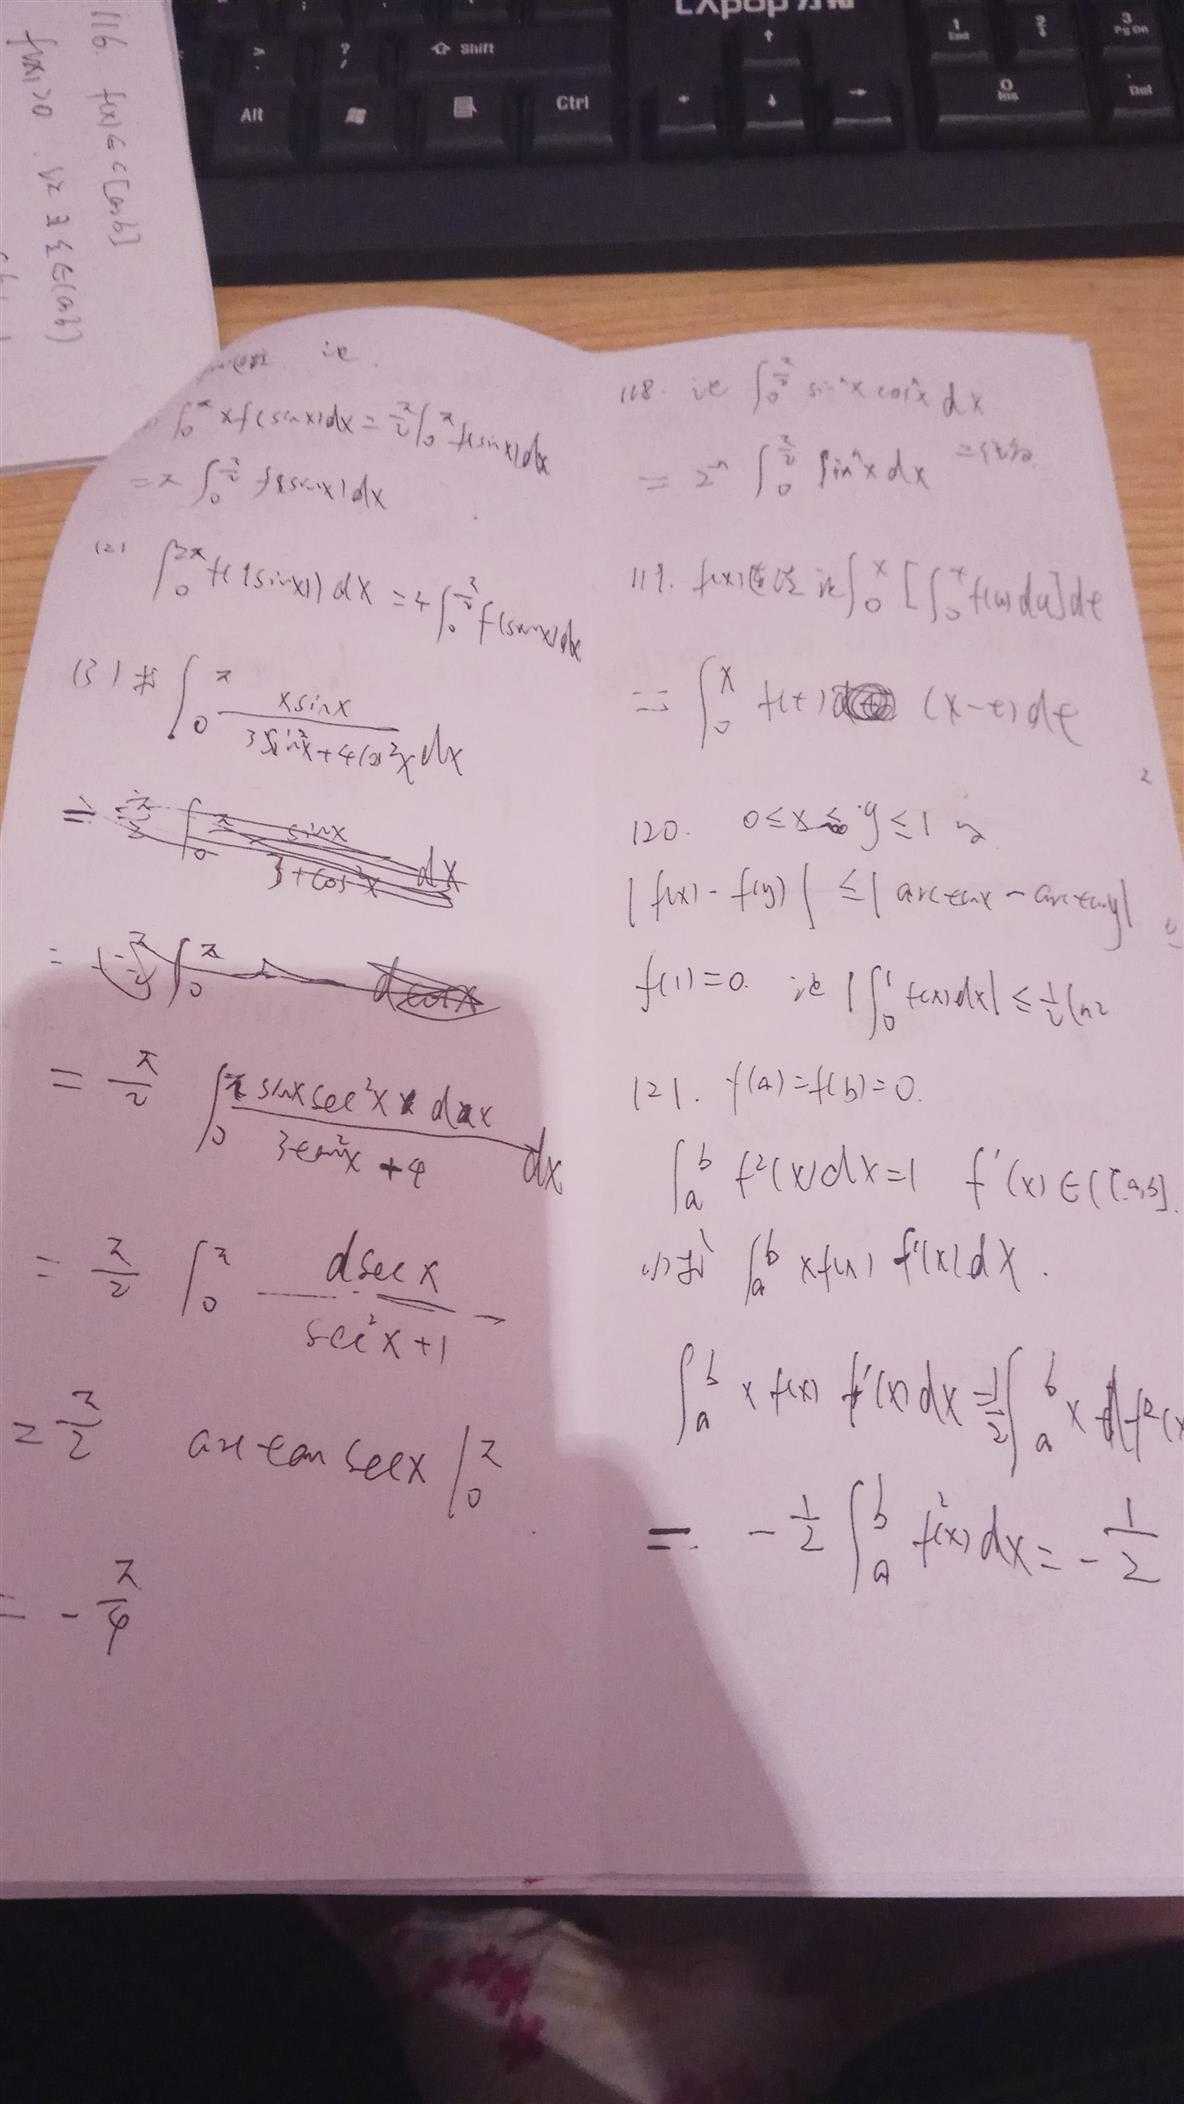 116. f(x)∈C[a,b]
f(x)>0. 证∃ξ∈(a,b)
> .
? /
⇧ Shift
Alt
Ctrl
↑
← ↓ →
1 End
2
3 Pg Dn
0 Ins
. Del
证
∫₀^π xf(sinx)dx = π/2 ∫₀^π f(sinx)dx
= π ∫₀^(π/2) f(sinx)dx
(2) ∫₀^(2π) f(|sinx|)dx = 4∫₀^(π/2) f(sinx)dx
(3) 求 ∫₀^π xsinx / (3sin²x+4cos²x) dx
= π/2 ∫₀^π sinx / (3+cos²x) dx
= π/2 ∫₀^π sinx sec²x dx / (3tan²x+4) dx
= π/2 ∫₀^π dsecx / (sec²x+1)
= π/2 arctan secx |₀^π
= -π/4
118. 证 ∫₀^(π/2) sinⁿx cosⁿx dx
= 2⁻ⁿ ∫₀^(π/2) sinⁿx dx
119. f(x)连续 证∫₀^x [∫₀^t f(u)du]dt
= ∫₀^x f(t) (x-t)dt
120. 0≤x≤y≤1
|f(x)-f(y)| ≤ |arctanx-arctany|
f(1)=0. 证 |∫₀^1 f(x)dx| ≤ ½ln2
121. f(a)=f(b)=0.
∫ₐ^b f²(x)dx=1 f'(x)∈C[a,b].
(1)求 ∫ₐ^b xf(x)f'(x)dx.
∫ₐ^b xf(x)f'(x)dx = ½∫ₐ^b x df²(x
= -½ ∫ₐ^b f²(x)dx = -½